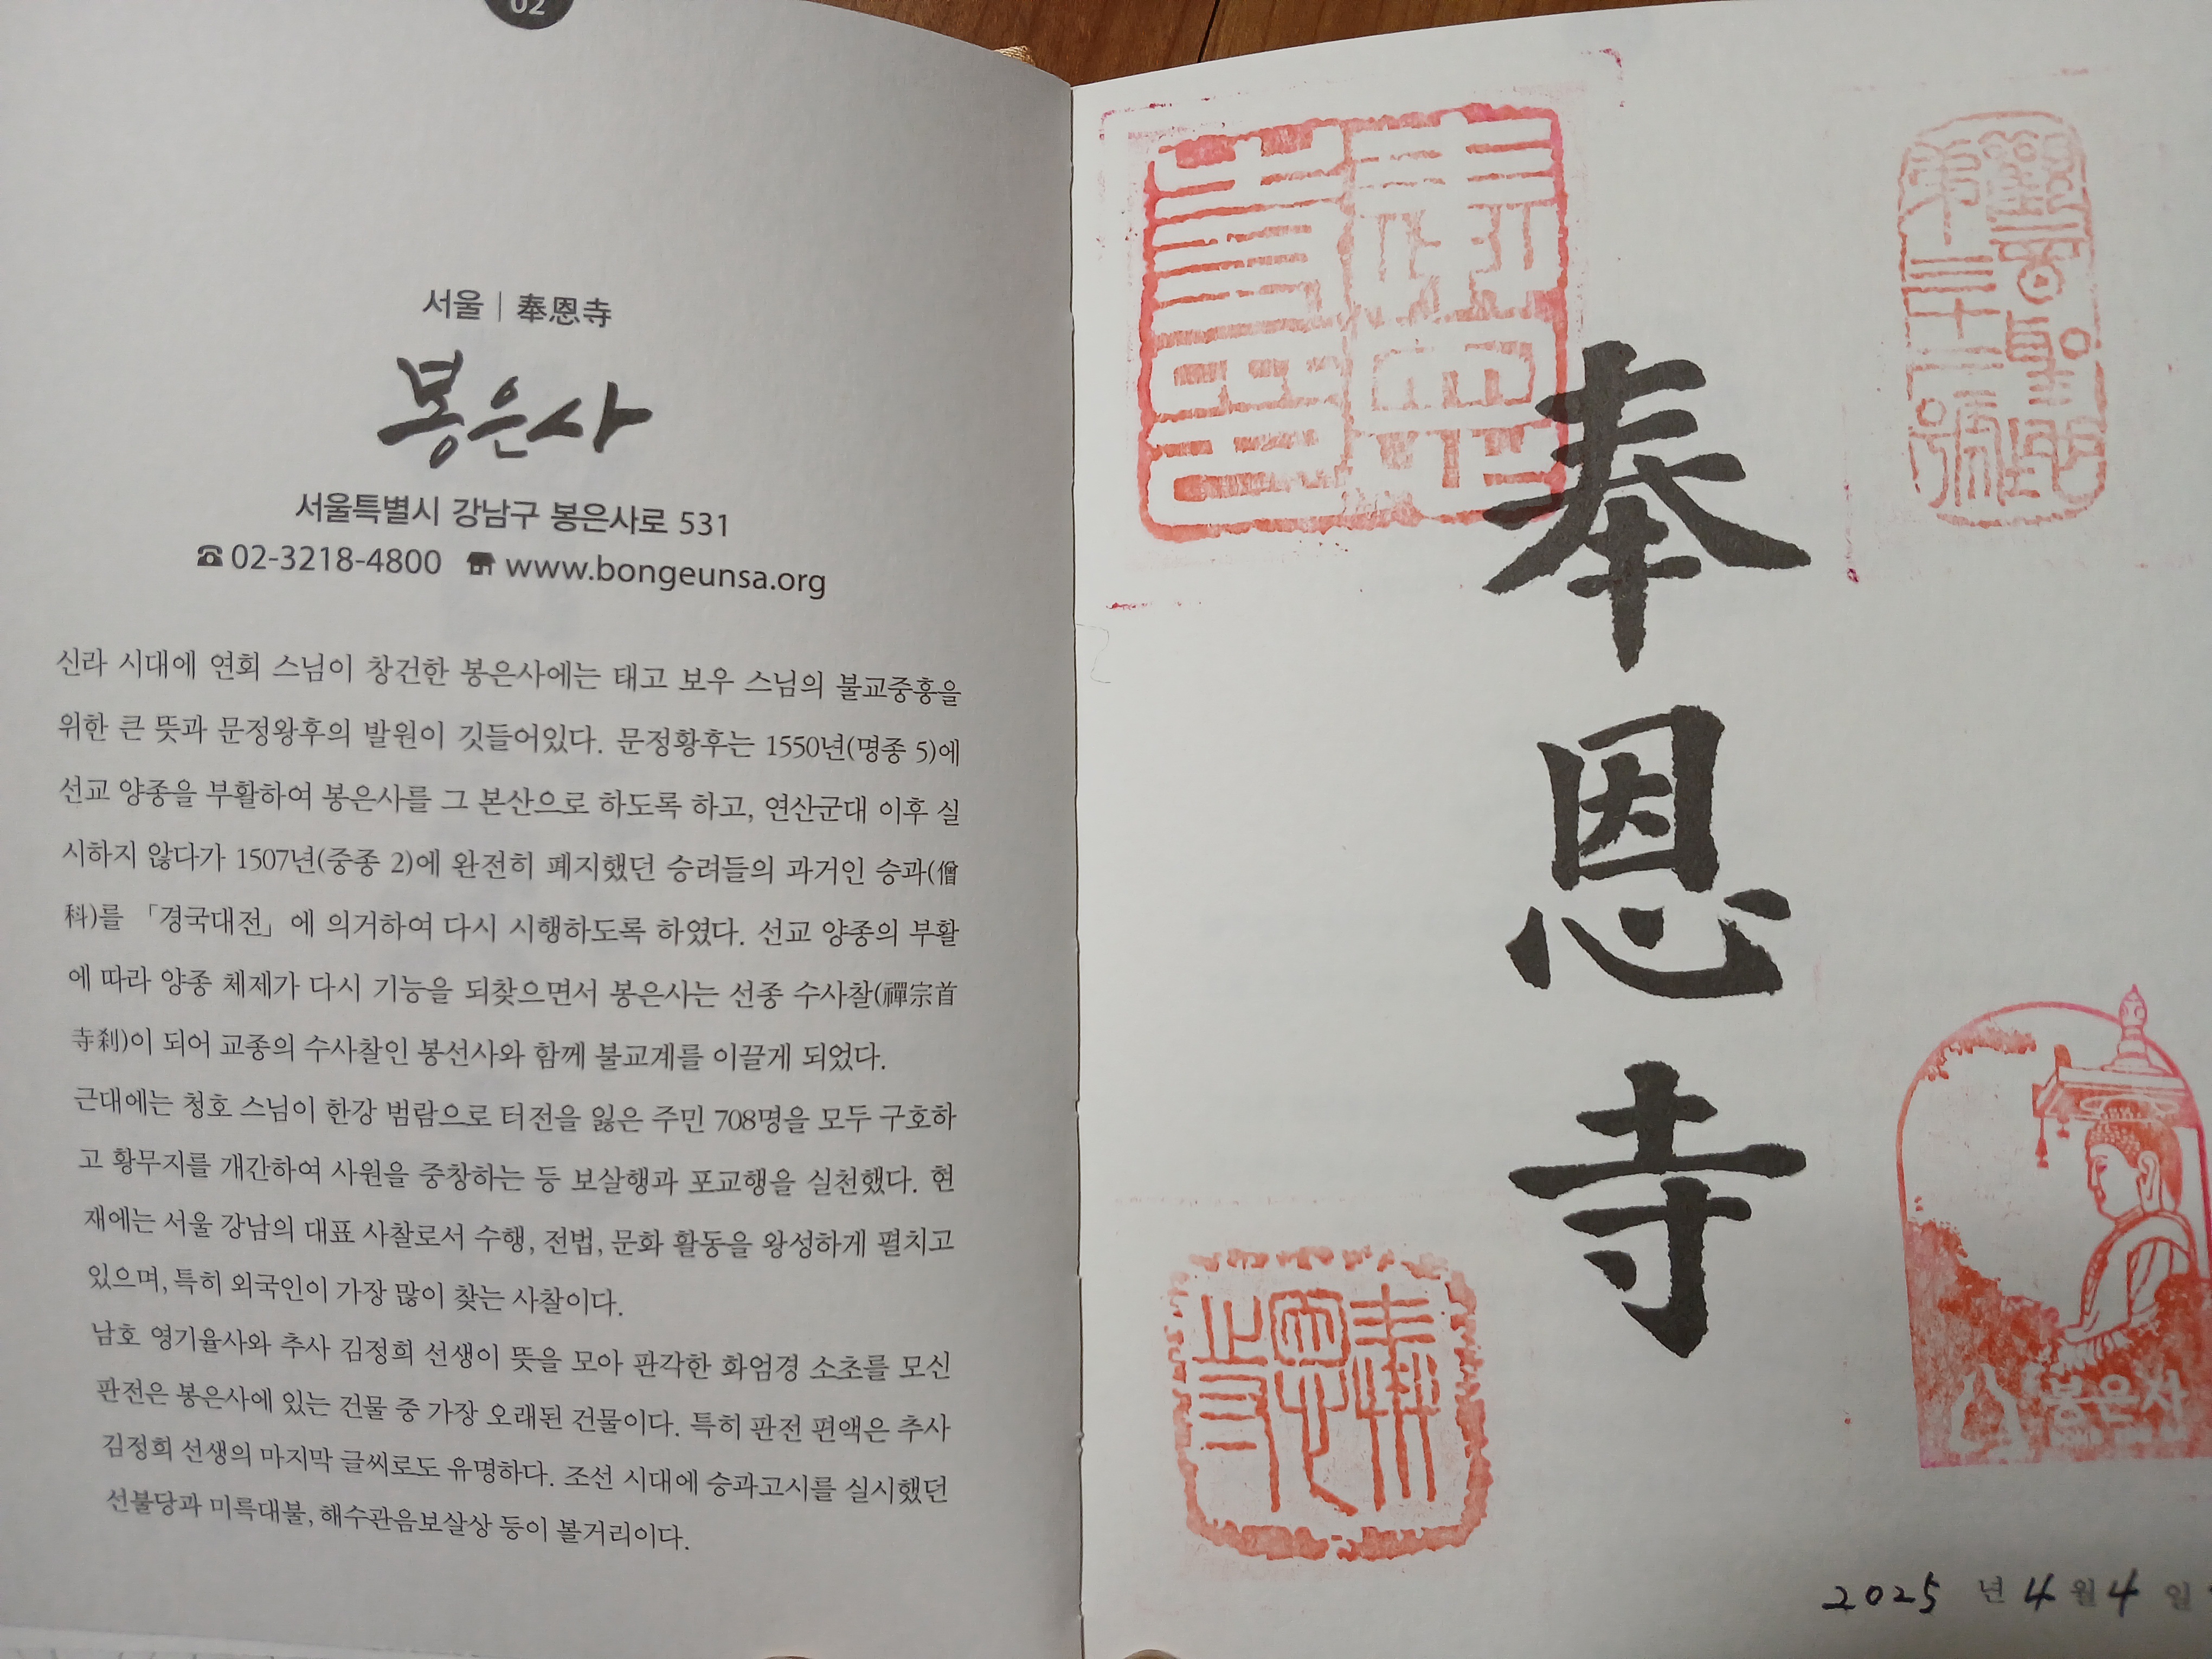 02
서울 | 奉恩寺
봉은사
서울특별시 강남구 봉은사로 531
☎ 02-3218-4800 www.bongeunsa.org
신라 시대에 연회 스님이 창건한 봉은사에는 태고 보우 스님의 불교중흥을
위한 큰 뜻과 문정왕후의 발원이 깃들어있다. 문정황후는 1550년(명종 5)에
선교 양종을 부활하여 봉은사를 그 본산으로 하도록 하고, 연산군대 이후 실
시하지 않다가 1507년(중종 2)에 완전히 폐지했던 승려들의 과거인 승과(僧
科)를 「경국대전」에 의거하여 다시 시행하도록 하였다. 선교 양종의 부활
에 따라 양종 체제가 다시 기능을 되찾으면서 봉은사는 선종 수사찰(禪宗首
寺刹)이 되어 교종의 수사찰인 봉선사와 함께 불교계를 이끌게 되었다.
근대에는 청호 스님이 한강 범람으로 터전을 잃은 주민 708명을 모두 구호하
고 황무지를 개간하여 사원을 중창하는 등 보살행과 포교행을 실천했다. 현
재에는 서울 강남의 대표 사찰로서 수행, 전법, 문화 활동을 왕성하게 펼치고
있으며, 특히 외국인이 가장 많이 찾는 사찰이다.
남호 영기율사와 추사 김정희 선생이 뜻을 모아 판각한 화엄경 소초를 모신
판전은 봉은사에 있는 건물 중 가장 오래된 건물이다. 특히 판전 편액은 추사
김정희 선생의 마지막 글씨로도 유명하다. 조선 시대에 승과고시를 실시했던
선불당과 미륵대불, 해수관음보살상 등이 볼거리이다.
奉恩寺
第三十二號
奉恩寺
봉은사
2025 년 4 월 4 일